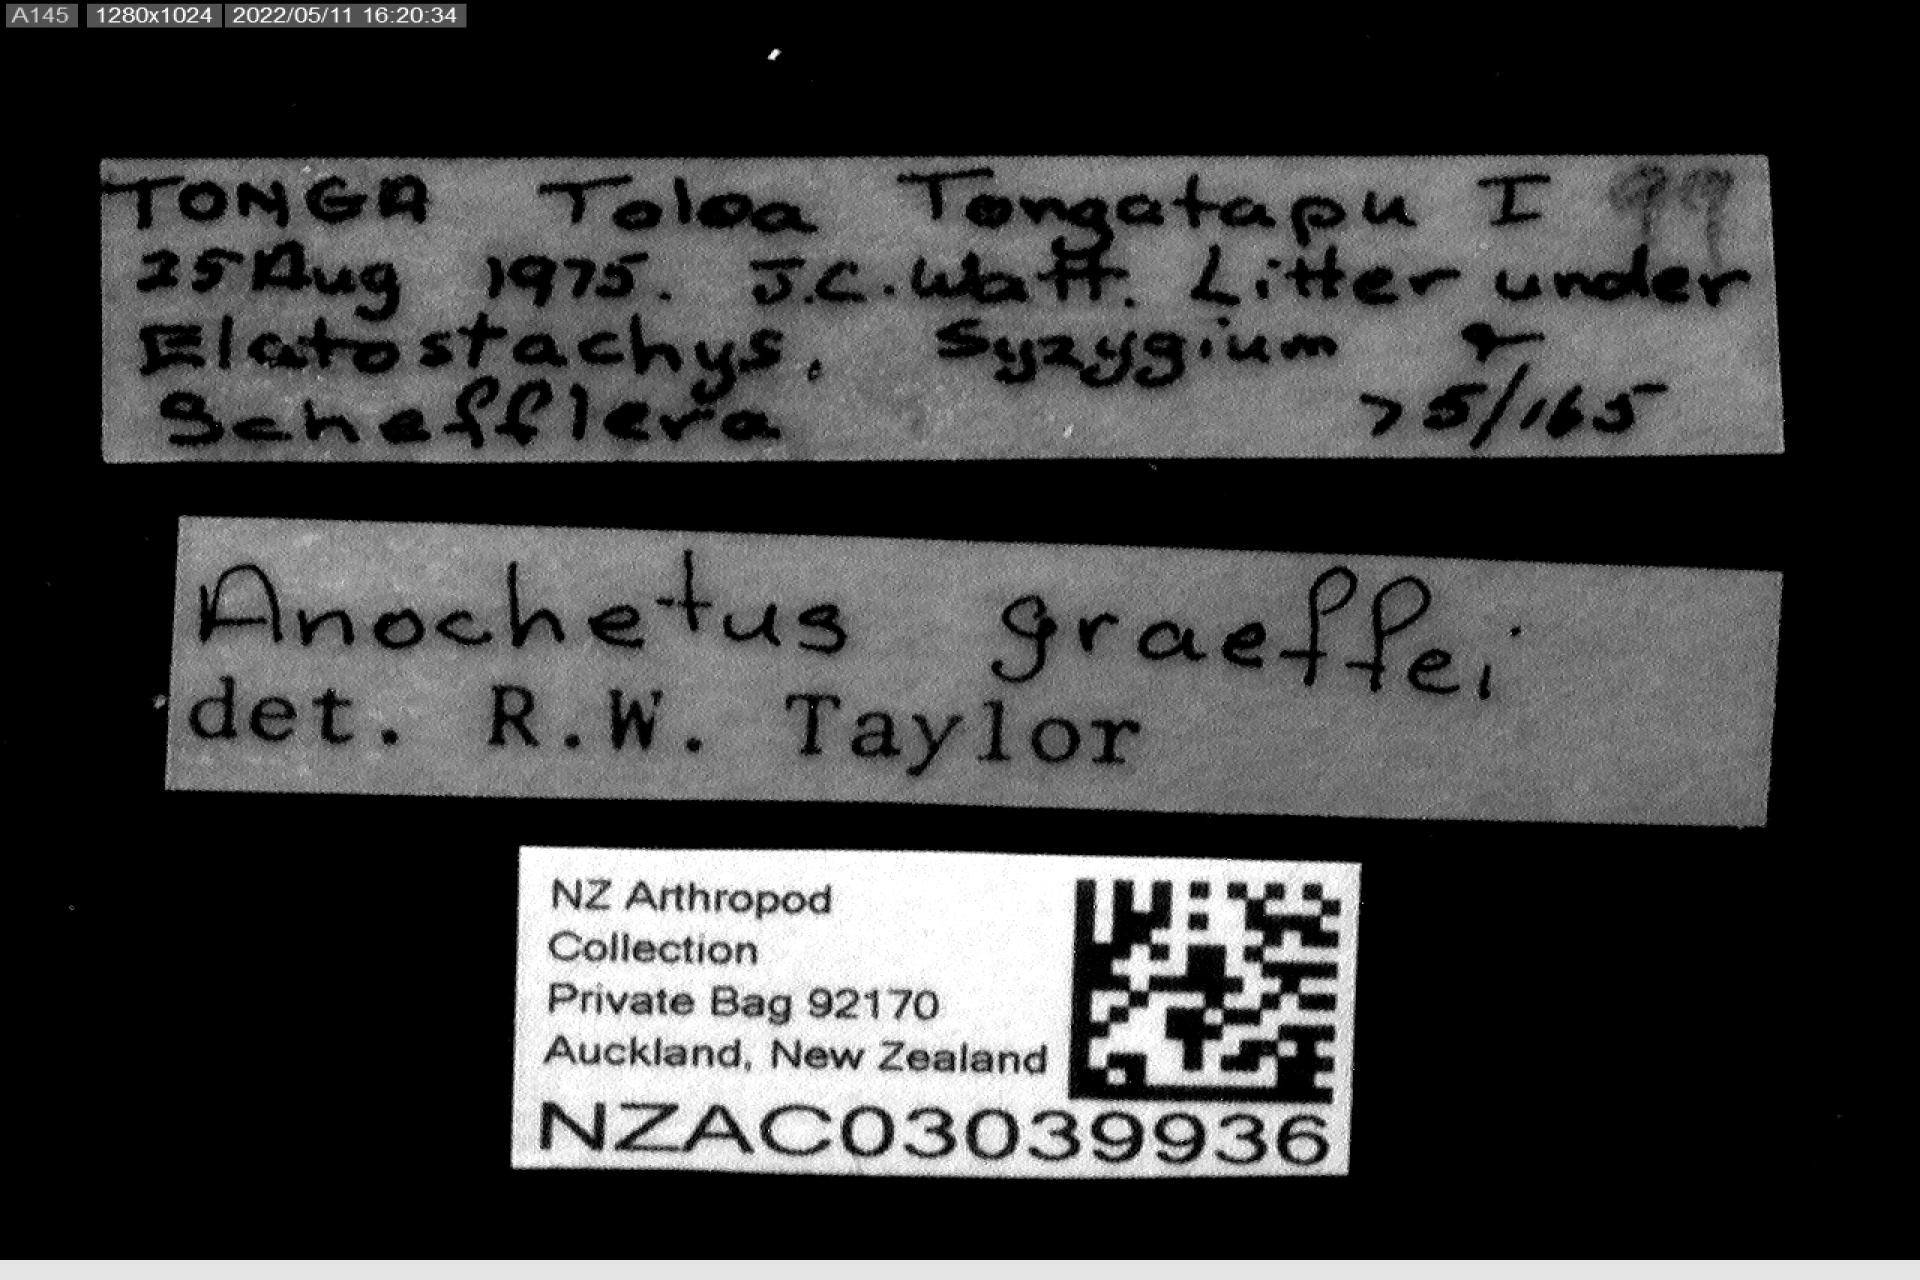 A145 1280x1024 2022/05/11 16:20:34
TONGA Toloa Tongatapu I 99
25 Aug 1975. J.C. Watt. Litter under
Elatostachys, Syzygium &
Schefflera 75/165
Anochetus graeffei
det. R.W. Taylor
NZ Arthropod
Collection
Private Bag 92170
Auckland, New Zealand
NZAC03039936